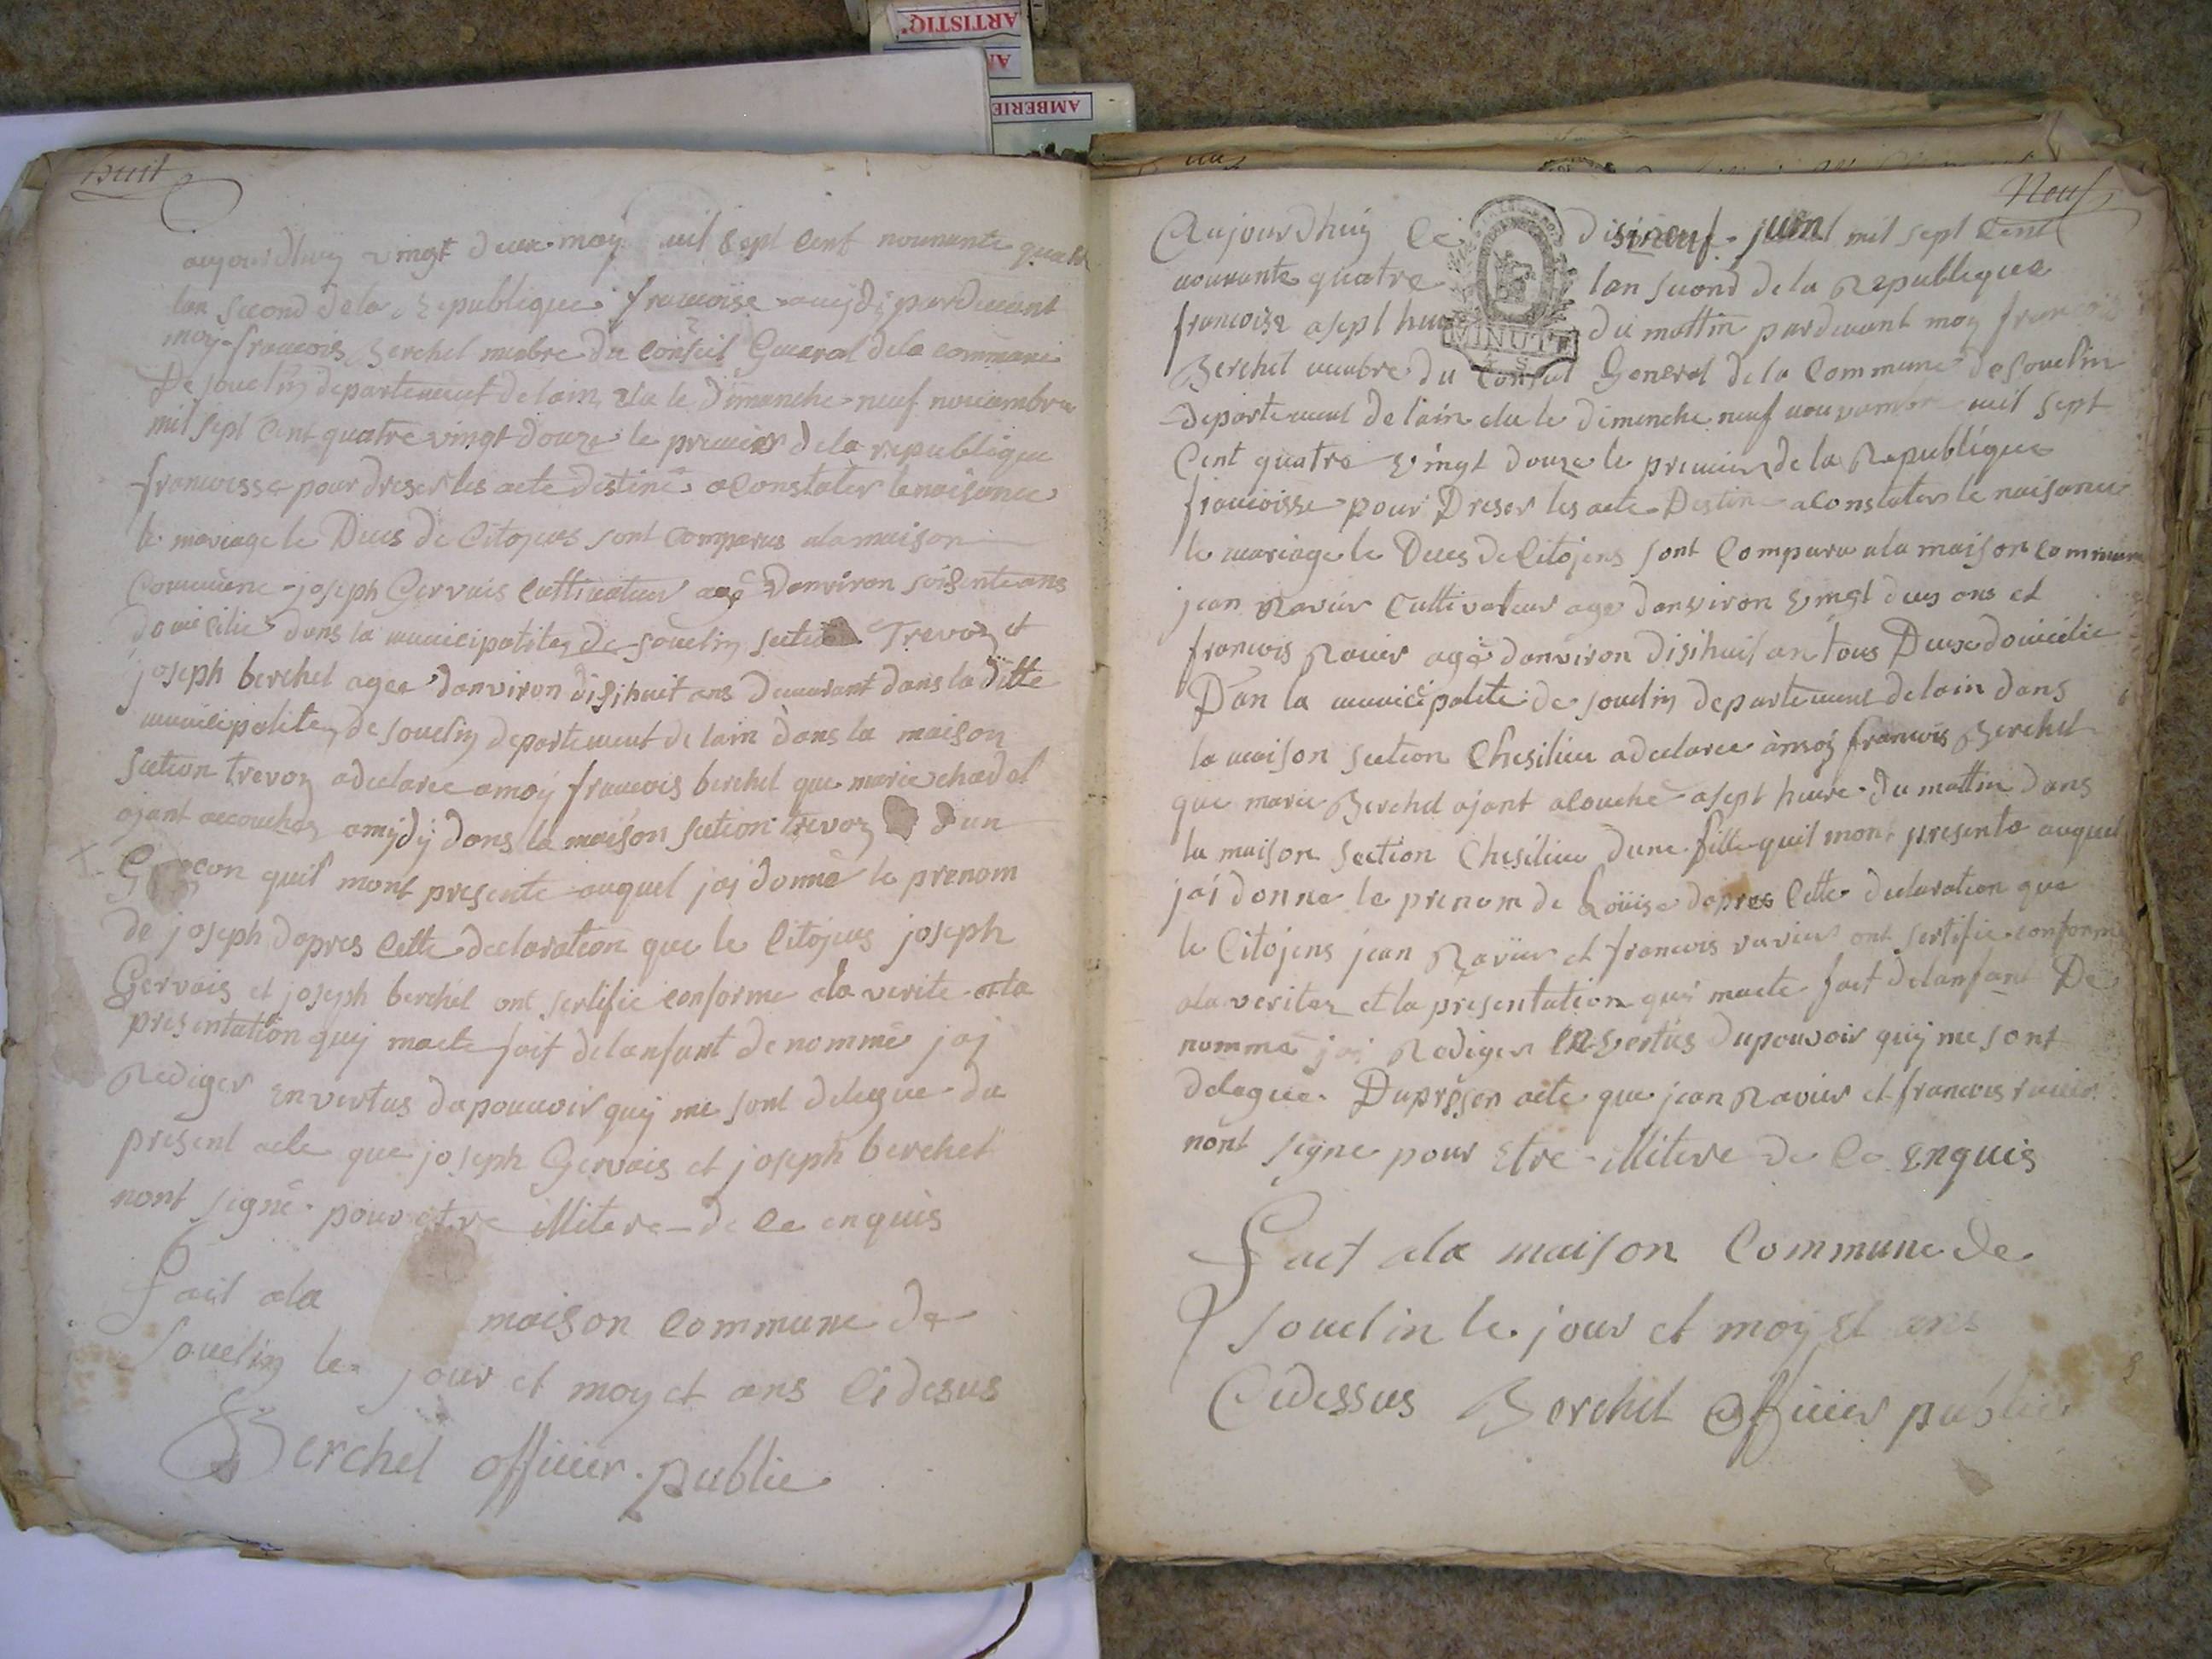 ARTISTIQ'
AMBERIE
huit
aujourdhuy vingt deux may mil sept cent nonnante quatre
lan second dela republique francoise a myds pardevant
moy francois Berchet menbre du Conseil General dela commune
De souclin departement de lain elu le dimanche neuf novambre
mil sept Cent quatre vingt douze le premier dela republique
francoisse pour dreser les acte destine a Constater le naisance
le mariage le Deces de Citojens sont Comparus ala maison
Commune joseph Gervais Cultivateur age danviron soisente ans
domicilie dans la municipalite de souclin section Trevoz et
joseph berchet agee danviron disihuit ans demeurant dans la ditte
municipalite de souclin departement de lain dans la maison
section trevoz a declaree a moy francois berchet que marie chadel
ajant accouchez a mydy dans la maison section trevoz dun
Garcon quil mont presente auquel jai donné le prenom
de joseph dapres Cette declaration que le Citojens joseph
Gervais et joseph berchet ont sertifie conforme ala verite et la
presentation quy macte fait delanfant denommé jaj
Rediger en vertus du pouvoir quy me sont delegue du
present acte que joseph Gervais et joseph berchet
nont signé pour etre illitere de Ce enquis
Fait ala maison Commune de
Souclin le jour et moy et ans Cidesus
Berchet officier public
Neuf
Aujourdhuy le disineuf juin mil sept Cent
nonnante quatre lan second de la Republique
francoise a sept heure du mattin pardevant moy francois
Berchet menbre du Conseil General dela Commune de Souclin
departement de lain elu le dimenche neuf nouvambre mil sept
Cent quatre vingt douze le premier de la Republique
francoisse pour Dreser les acte Destine a Constater le naisance
le mariage le Deces de Citojens sont Comparu ala maison commune
jean Ravier Cultivateur age danviron vingt deus ans et
francois Ravier agé danviron disihuit an tous Deux domicilie
Dan la municipalite de souclin departement delain dans
la maison section Chesilieu a declaree a moy francois Berchet
que marie Berchet ajant acouché a sept heure du mattin dans
la maison section Chesilieu dune fille quil mont presente auquel
jai donne le prenom de Louise dapres Cette declaration que
le Citojens jean Ravier et francois ravier ont sertifie conforme
ala veritez et la presentation quy macte fait delanfant De
nomme jai Rediger en vertus du pouvoir quy me sont
delegue Du presen acte que jean Ravier et francois ravier
nont signe pour Etre illitere de Ce enquis
Fait ala maison Commune de
Souclin le jour et moy Et ans
Cidessus Berchet officier public
MINUTE